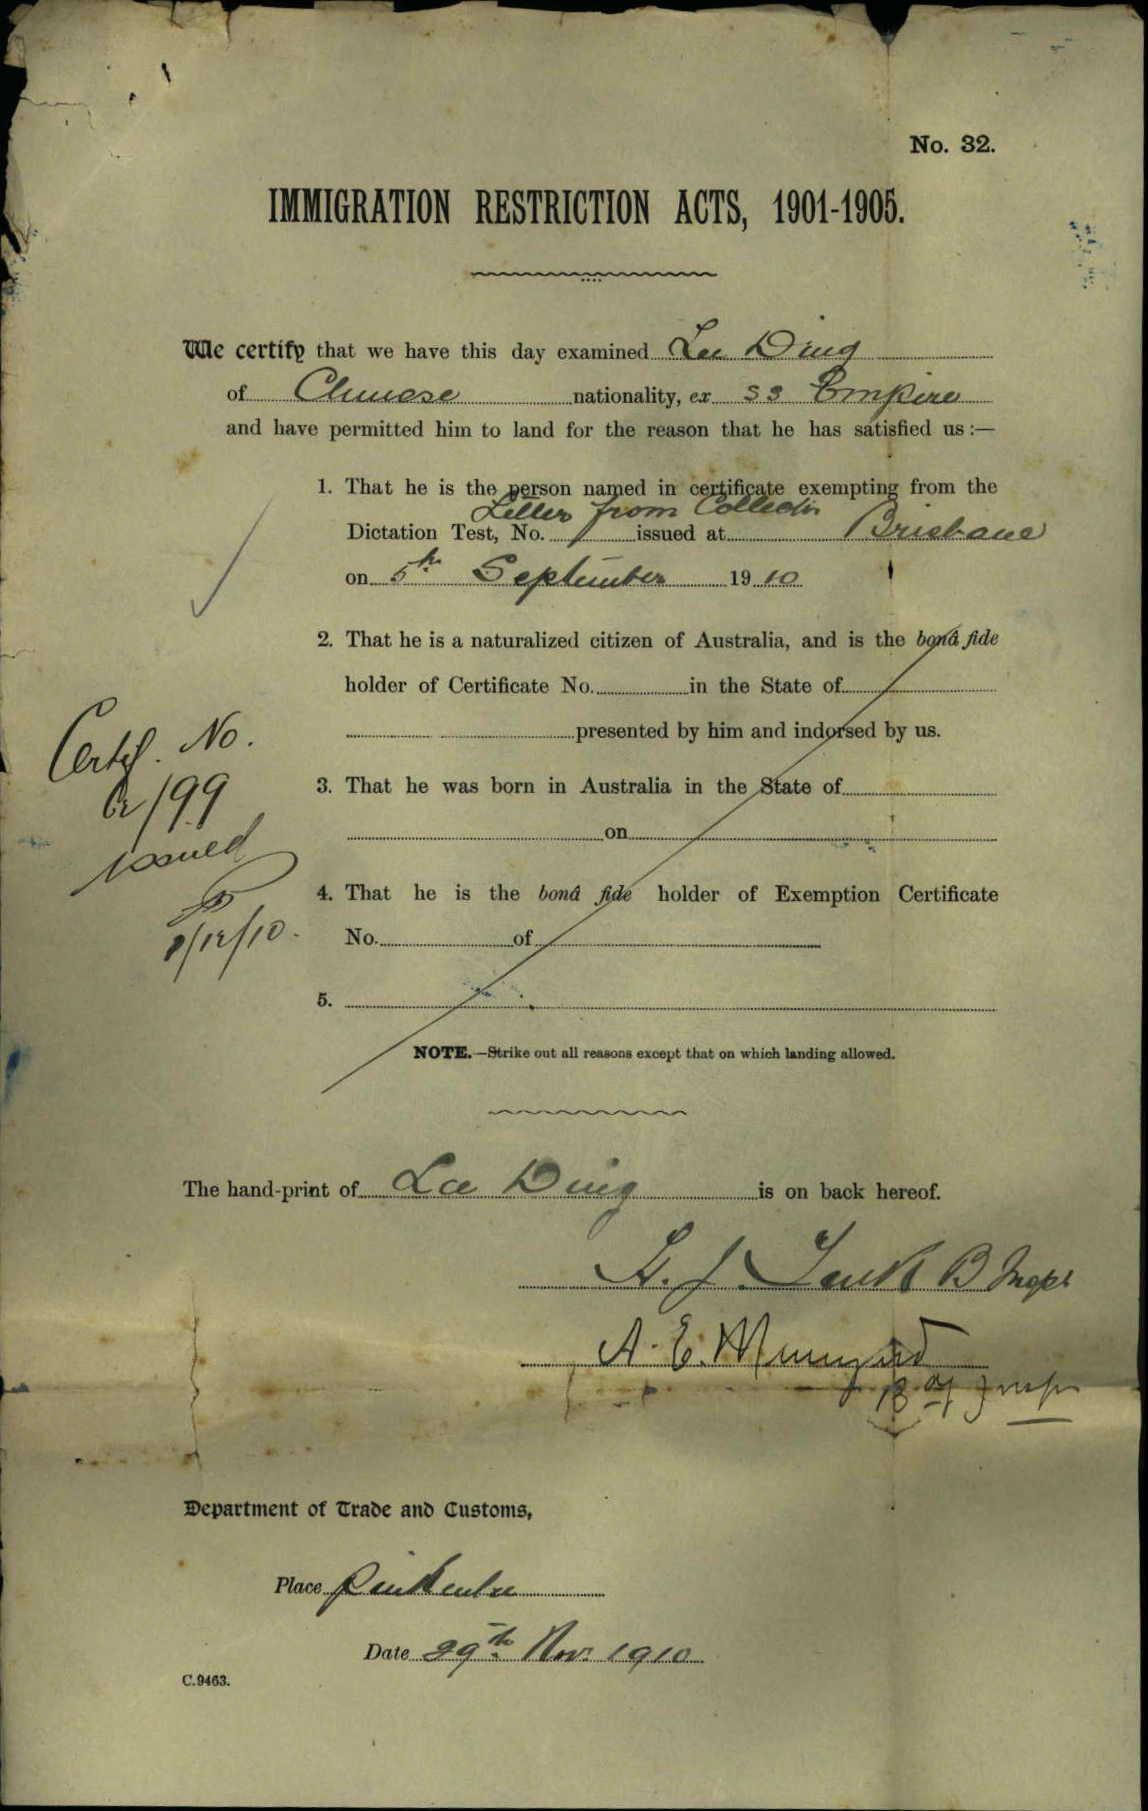 No. 32.
IMMIGRATION RESTRICTION ACTS, 1901-1905.
We certify that we have this day examined Lee Ding
of Chinese nationality, ex SS Empire
and have permitted him to land for the reason that he has satisfied us :—
1. That he is the person named in certificate exempting from the
Letter from Collector
Dictation Test, No. issued at Brisbane
on 5th September 1910
2. That he is a naturalized citizen of Australia, and is the bonâ fide
holder of Certificate No. in the State of
presented by him and indorsed by us.
3. That he was born in Australia in the State of
on
4. That he is the bonâ fide holder of Exemption Certificate
No. of
5.
NOTE.—Strike out all reasons except that on which landing allowed.
Certif. No.
/99
issued
8/12/10.
The hand-print of Lee Ding is on back hereof.
H. J. B Inspr
A. E.
B of Inspr
Department of Trade and Customs,
Place Pinkenba
Date 29th Nov. 1910
C.9463.